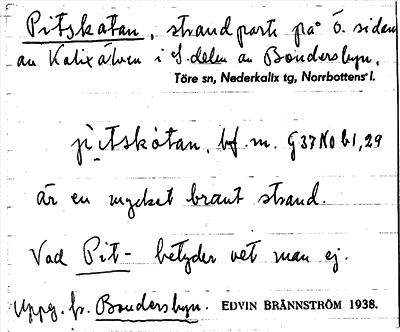 Pitskatan, strandparti på Ö. sidan
av Kalixälven i S. delen av Bondersbyn.
Töre sn, Nederkalix tg, Norrbottens l.
pìtskátan, bf. m. G37 No b1,29
är en mycket brant strand.
Vad Pit- betyder vet man ej.
Uppg. fr. Bondersbyn. EDVIN BRÄNNSTRÖM 1938.